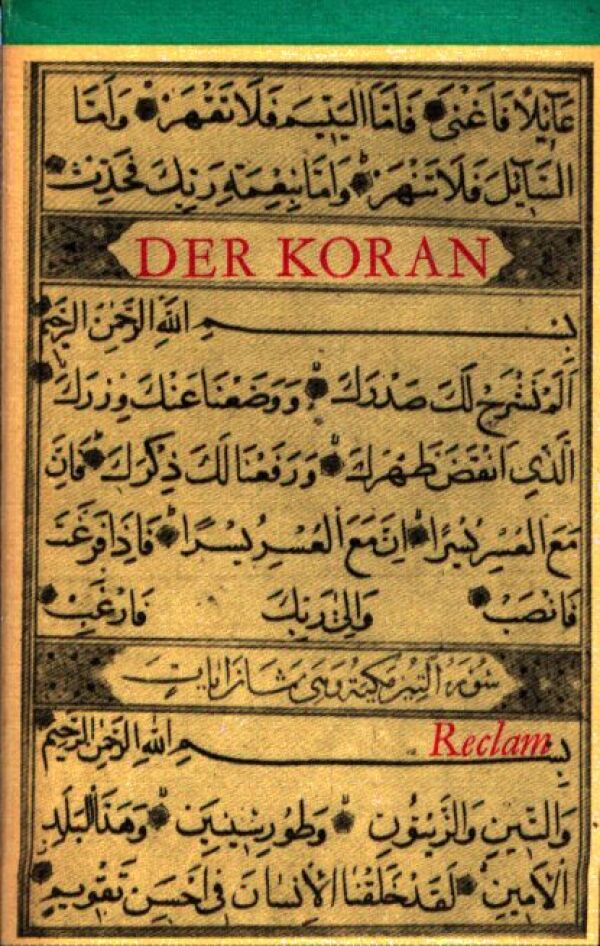 عَآئِلًا فَاَغْنٰى فَاَمَّا الْيَتِيمَ فَلَا تَقْهَرْ وَاَمَّا
السَّآئِلَ فَلَا تَنْهَرْ وَاَمَّا بِنِعْمَةِ رَبِّكَ فَحَدِّثْ
DER KORAN
بِسْمِ اللهِ الرَّحْمٰنِ الرَّحِيمِ
اَلَمْ نَشْرَحْ لَكَ صَدْرَكَ وَوَضَعْنَا عَنْكَ وِزْرَكَ
الَّذِي اَنْقَضَ ظَهْرَكَ وَرَفَعْنَا لَكَ ذِكْرَكَ فَاِنَّ
مَعَ الْعُسْرِ يُسْرًا اِنَّ مَعَ الْعُسْرِ يُسْرًا فَاِذَا فَرَغْتَ
فَانْصَبْ وَاِلٰى رَبِّكَ فَارْغَبْ
سورة التين مكية وهى ثمان ايات
Reclam
بِسْمِ اللهِ الرَّحْمٰنِ الرَّحِيمِ
وَالتِّينِ وَالزَّيْتُونِ وَطُورِ سِينِينَ وَهٰذَا الْبَلَدِ
الْاَمِينِ لَقَدْ خَلَقْنَا الْاِنْسَانَ فِى اَحْسَنِ تَقْوِيمٍ